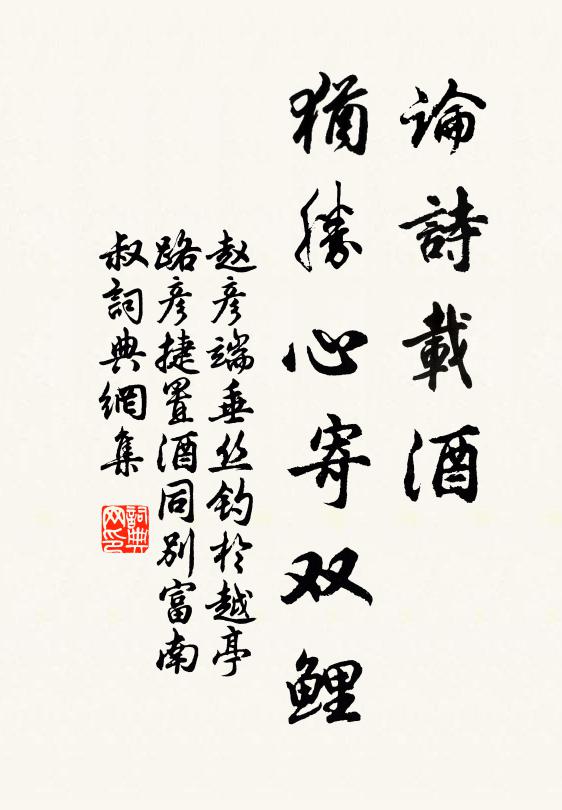 論詩載酒
猶勝心寄双鲤
赵彦端垂丝钓於越亭
路彦捷置酒同别富南
叔詞典網集
詞典
网印